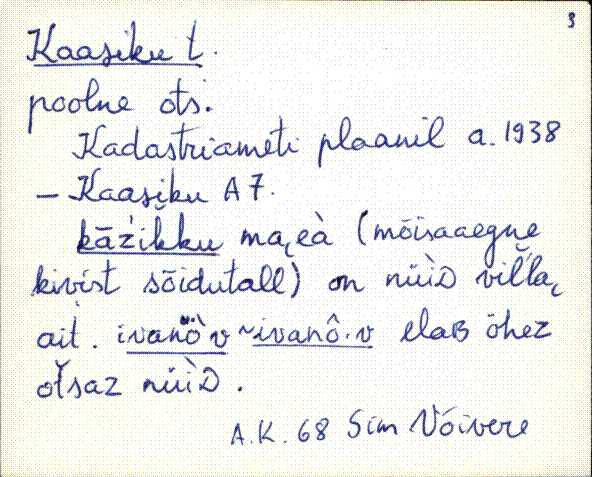 3
Kaasiku t.
poolne ots.
Kadastriameti plaanil a. 1938
– Kaasiku A7.
kāźikku ma,eà (mõisaaegne
kivist sõidutall) on nüìD viĺla,
ait. ivanö̀v ~ ivanô·v elaB ühez
otsaz nüìD.
A.K. 68 Sim Võivere